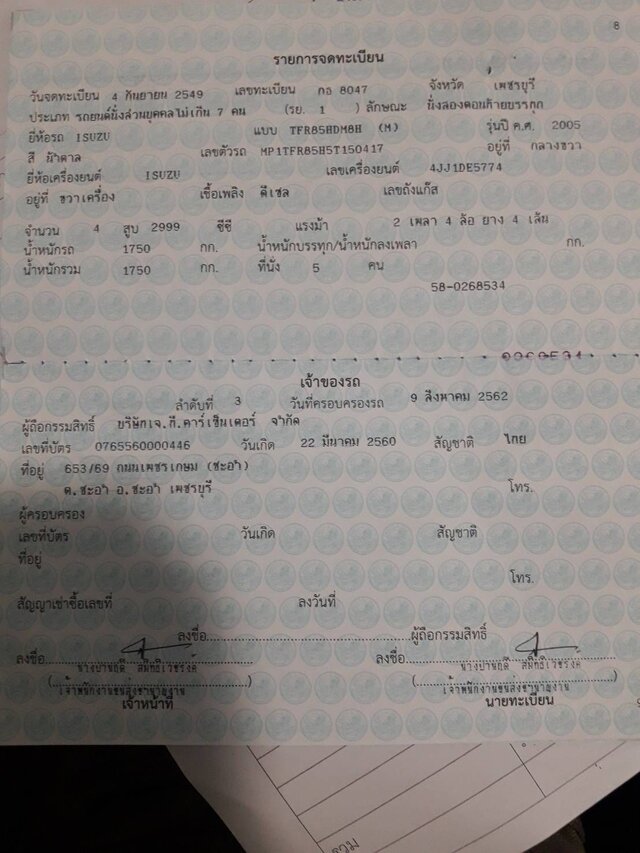 8
รายการจดทะเบียน
วันจดทะเบียน 4 กันยายน 2549 เลขทะเบียน กอ 8047 จังหวัด เพชรบุรี
ประเภท รถยนต์นั่งส่วนบุคคลไม่เกิน 7 คน (รย. 1 ) ลักษณะ นั่งสองตอนท้ายบรรทุก
ยี่ห้อรถ ISUZU แบบ TFR85HDM8H (M) รุ่นปี ค.ศ. 2005
สี น้ำตาล เลขตัวรถ MP1TFR85H5T150417 อยู่ที่ กลางขวา
ยี่ห้อเครื่องยนต์ ISUZU เลขเครื่องยนต์ 4JJ1DE5774
อยู่ที่ ขวาเครื่อง เชื้อเพลิง ดีเซล เลขถังแก๊ส
จำนวน 4 สูบ 2999 ซีซี แรงม้า 2 เพลา 4 ล้อ ยาง 4 เส้น
น้ำหนักรถ 1750 กก. น้ำหนักบรรทุก/น้ำหนักลงเพลา กก.
น้ำหนักรวม 1750 กก. ที่นั่ง 5 คน
58-0268534
เจ้าของรถ
ลำดับที่ 3 วันที่ครอบครองรถ 9 สิงหาคม 2562
ผู้ถือกรรมสิทธิ์ บริษัทเจ.กี.คาร์เซ็นเตอร์ จำกัด
เลขที่บัตร 0765560000446 วันเกิด 22 มีนาคม 2560 สัญชาติ ไทย
ที่อยู่ 653/69 ถนนเพชรเกษม (ชะอำ)
ต.ชะอำ อ.ชะอำ เพชรบุรี โทร.
ผู้ครอบครอง
เลขที่บัตร วันเกิด สัญชาติ
ที่อยู่
โทร.
สัญญาเช่าซื้อเลขที่ ลงวันที่
ลงชื่อ ผู้ถือกรรมสิทธิ์
ลงชื่อ ลงชื่อ
(เจ้าพนักงานขนส่งชำนาญงาน) (เจ้าพนักงานขนส่งชำนาญงาน)
เจ้าหน้าที่ นายทะเบียน
รวม